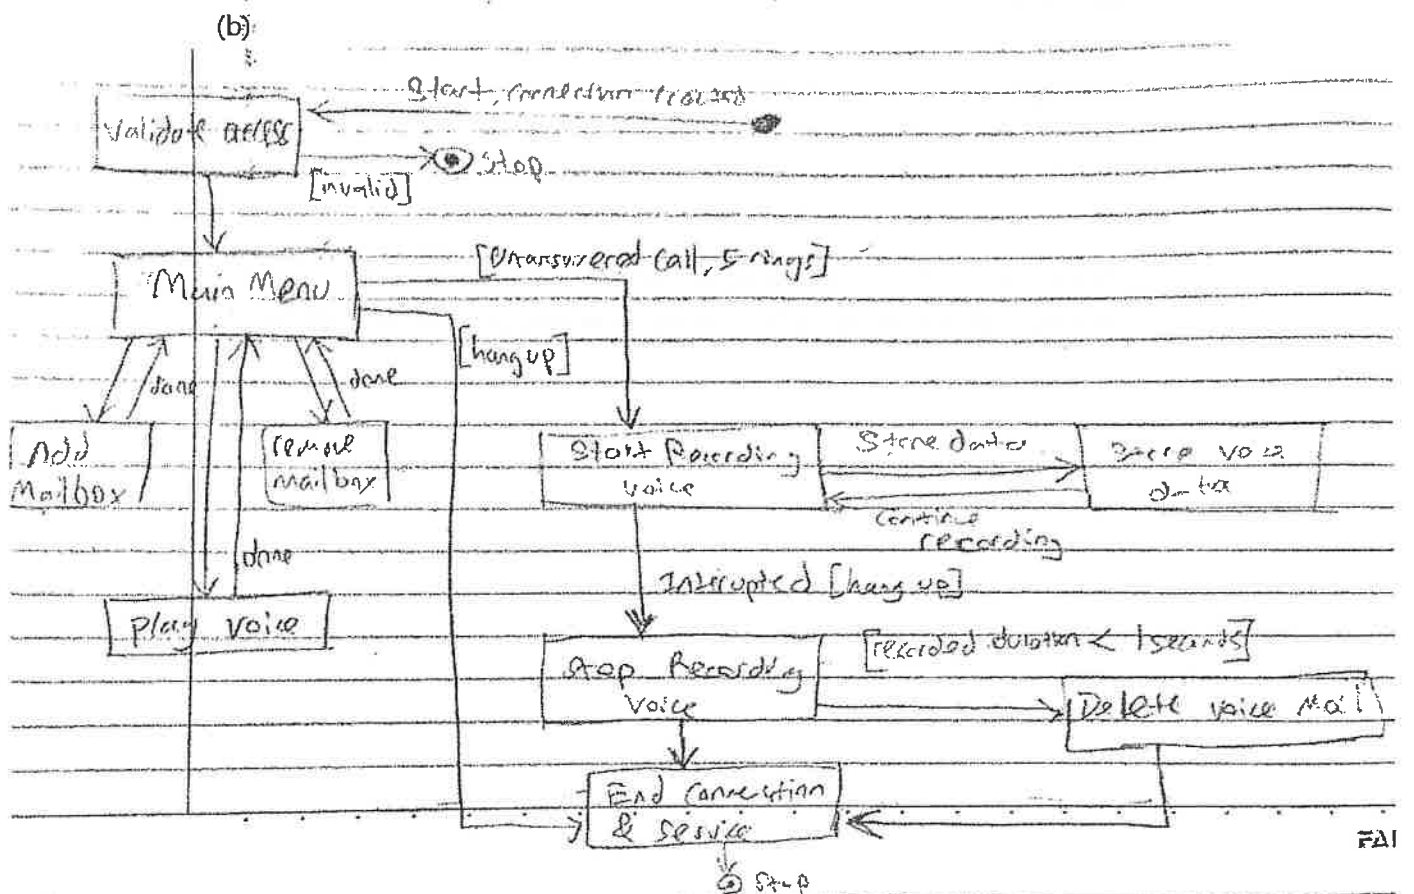 (b)
Start, connection
Validate access
[invalid]
Stop
Main Menu
[Unanswered call, 5 rings]
[hang up]
done
done
Add
Mailbox
remove
mailbox
Start Recording
voice
Store data
voice
data
continue
recording
done
Play voice
Intirupted [hang up]
Stop Recording
Voice
[recorded duration < 1 seconds]
Delete voice Mail
End Connection
& Service
Stop
FAI